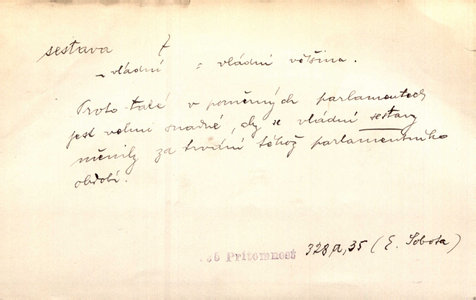 sestava
~ vládní = vládní většina.
Proto také v poměrných parlamentech
jest velmi snadné, aby se vládní sestavy
měnily za trvání téhož parlamentního
období.
Přítomnost 328a, 35 (E. Sobota)